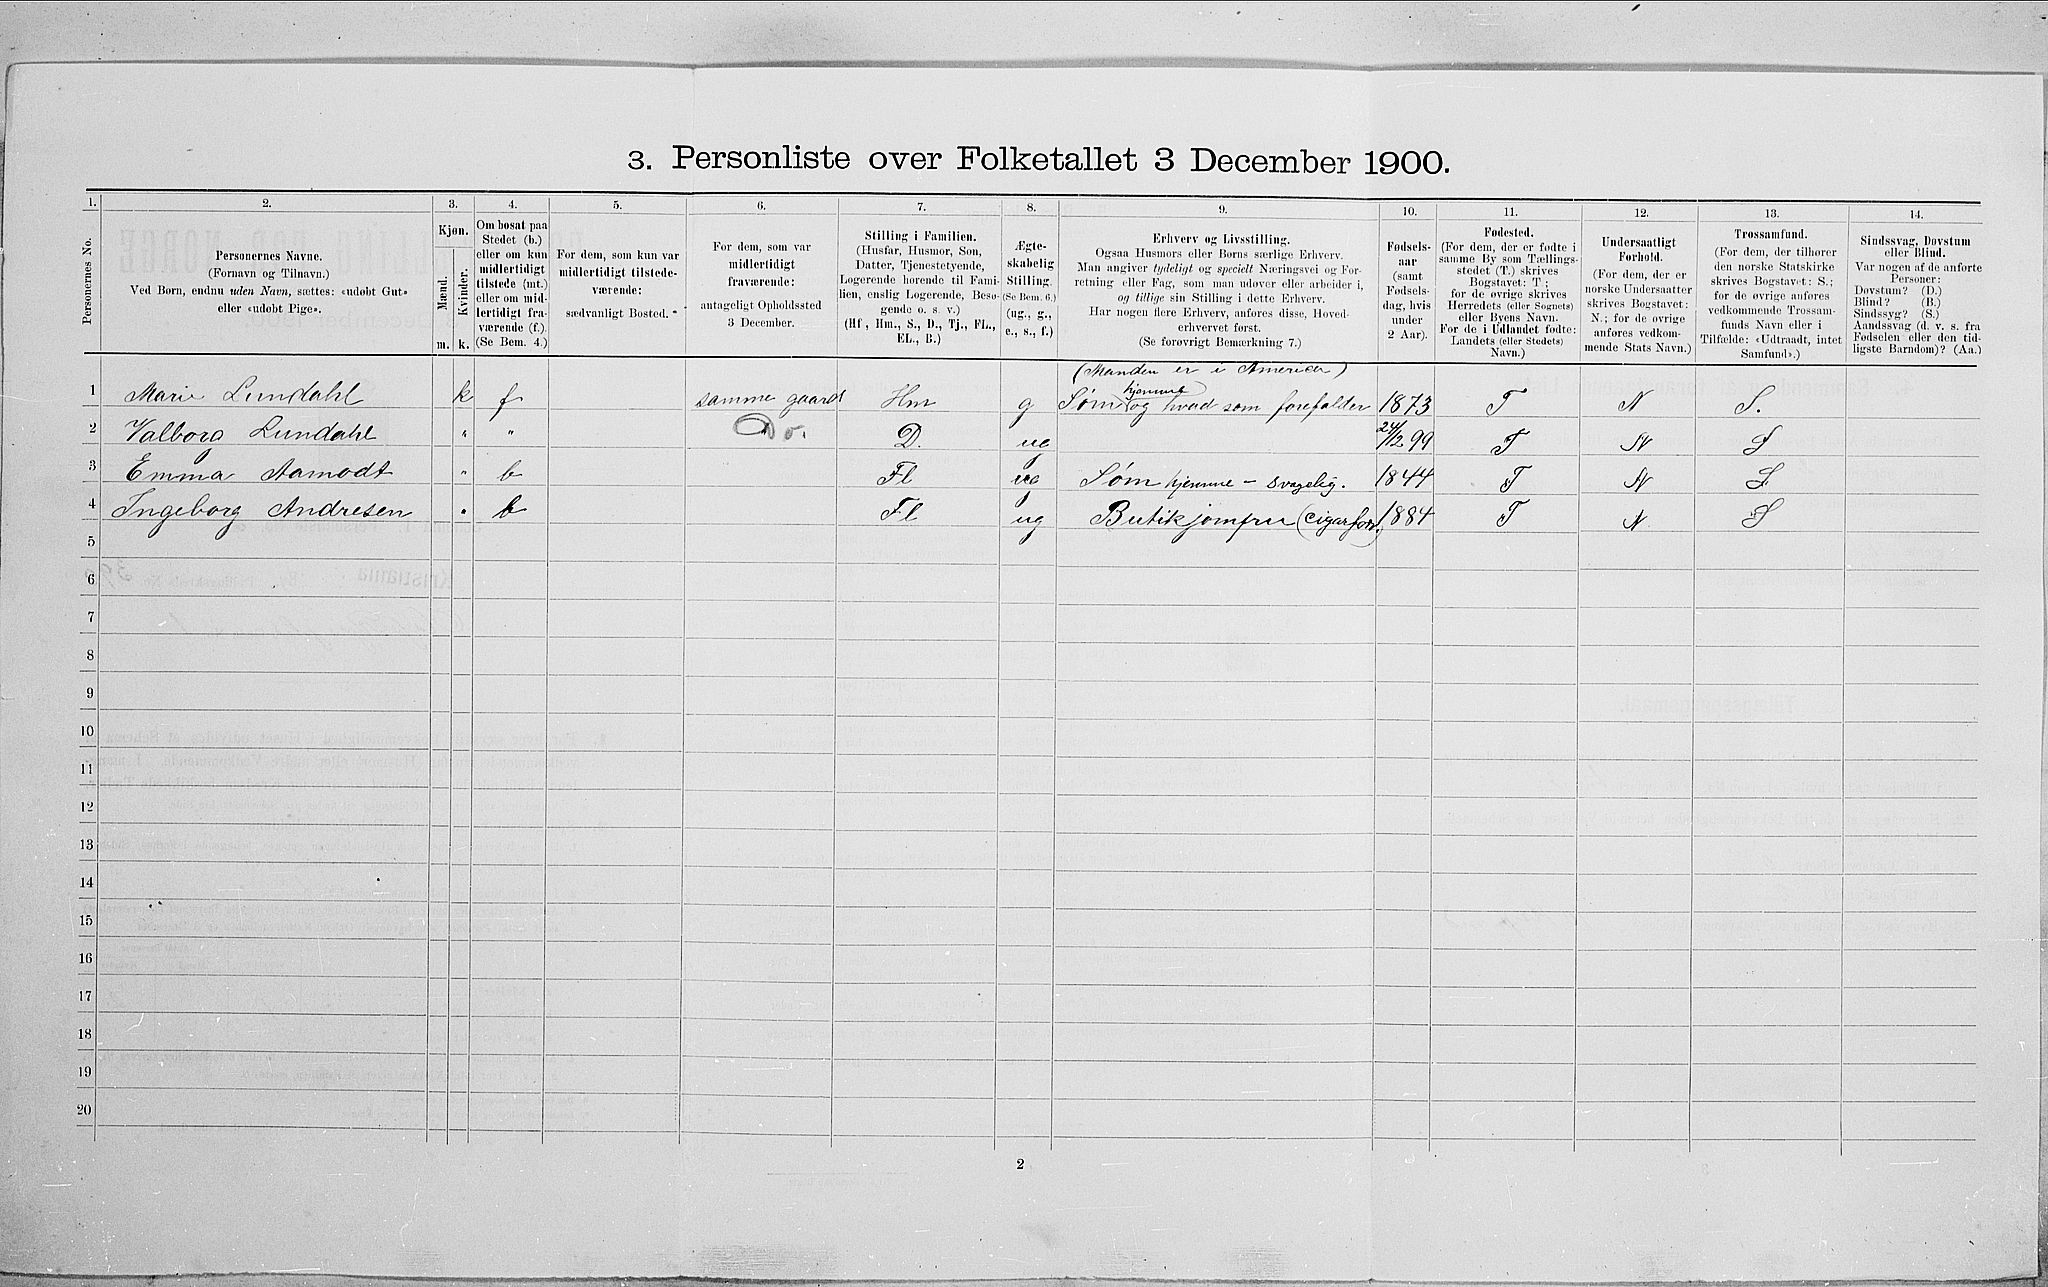 3. Personliste over Folketallet 3 December 1900.
1. 2. 3. 4. 5. 6. 7. 8. 9. 10. 11. 12. 13. 14.
Personernes No.
Personernes Navne.
(Fornavn og Tilnavn.)
Ved Børn, endnu uden Navn, sættes: «udøbt Gut»
eller «udøbt Pige».
Kjøn.
Mænd. Kvinder.
m. k.
Om bosat paa
Stedet (b.)
eller om kun
midlertidigt
tilstede (mt.)
eller om mid-
lertidigt fra-
værende (f.)
(Se Bem. 4.)
For dem, som kun var
midlertidigt tilstede-
værende:
sædvanligt Bosted.
For dem, som var
midlertidigt
fraværende:
antageligt Opholdssted
3 December.
Stilling i Familien.
(Husfar, Husmor, Søn,
Datter, Tjenestetyende,
Logerende hørende til Fami-
lien, enslig Logerende, Besø-
gende o. s. v.)
(Hf, Hm., S., D., Tj., FL.,
EL., B.)
Ægte-
skabelig
Stilling.
(Se Bem. 6.)
(ug., g.,
e., s., f.)
Erhverv og Livsstilling.
Ogsaa Husmors eller Børns særlige Erhverv.
Man angiver tydeligt og specielt Næringsvei og For-
retning eller Fag, som man udøver eller arbeider i,
og tillige sin Stilling i dette Erhverv.
Har nogen flere Erhverv, anføres disse, Hoved-
erhvervet først.
(Se forøvrigt Bemærkning 7.)
Fødsels-
aar
(samt
Fødsels-
dag, hvis
under
2 Aar).
Fødested.
(For dem, der er fødte i
samme By som Tællings-
stedet (T.) skrives
Bogstavet: T;
for de øvrige skrives
Herredets (eller Sognets)
eller Byens Navn.
For de i Udlandet fødte:
Landets (eller Stedets)
Navn.)
Undersaatligt
Forhold.
(For dem, der er
norske Undersaatter
skrives Bogstavet:
N.; for de øvrige
anføres vedkom-
mende Stats Navn.)
Trossamfund.
(For dem, der tilhører
den norske Statskirke
skrives Bogstavet: S.;
for de øvrige anføres
vedkommende Trossam-
funds Navn eller i
Tilfælde: «Udtraadt, intet
Samfund».)
Sindssvag, Døvstum
eller Blind.
Var nogen af de anførte
Personer:
Døvstum? (D.)
Blind? (B.)
Sindssyg? (S.)
Aandssvag (d. v. s. fra
Fødselen eller den tid-
ligste Barndom)? (Aa.)
(Manden er i America)
hjemme
1 Marie Lundahl k f samme gaard Hm g Søm og hvad som forefalder 1873 T N S.
2 Valborg Lundahl " " Do. D. ug 24/12 99 T N S
3 Emma Aamodt " b Fl ug Søm hjemme – svagelig. 1844 T N S
4 Ingeborg Andresen " b Fl ug Butikjomfru (cigarforr.) 1884 T N S
5
6
7
8
9
10
11
12
13
14
15
16
17
18
19
20
2